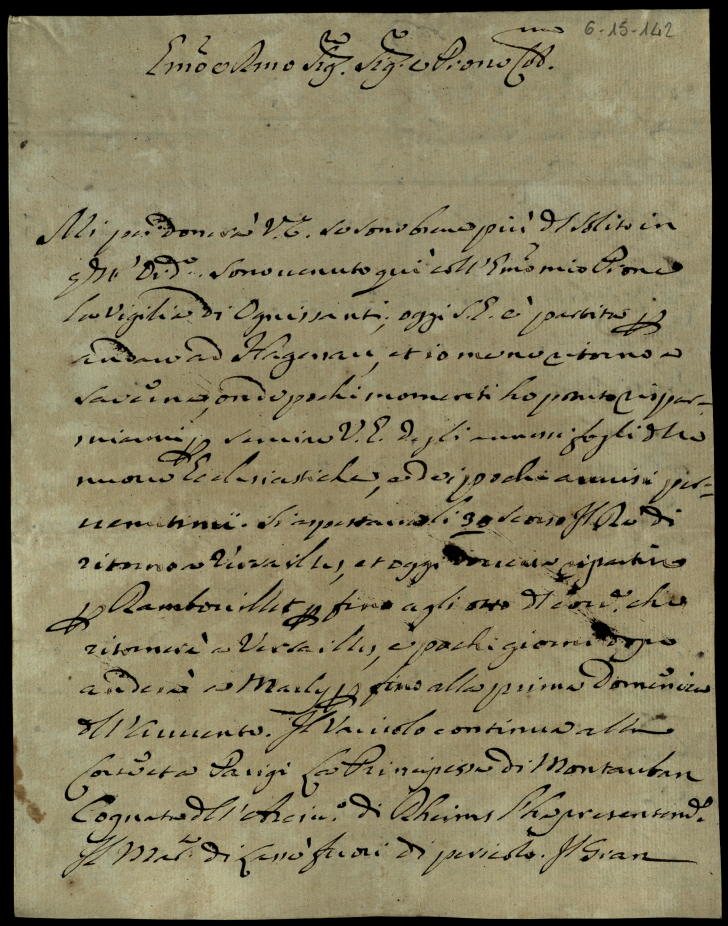 6-15-142
Emo e Rmo Sig. Sig. e Prone Col.mo
Mi perdonerà V.E. se sono breve più del solito in
q.to Ord.o. Sono venuto quì coll'Emo mio Prone
la vigilia di Ognissanti, oggi S.E. è partita p
andare ad Hagenau, et io me ne ritorno a
Saverne, onde pochi momenti ho potuto rispar-
miarmi p servire V.E. degli annessi fogli delle
nuove Ecclesiastiche, e dei pochi avvisi per-
venutimi. Si aspettava li 30 scorso Il Re di
ritorno a Versailles, et oggi doveva ripartire
p Rambouillet p fino agli otto del cor.e che
ritornerà a Versailles, e pochi giorni dopo
anderà a Marly p fino alla prima Domenica
dell'Avvento. Il Vaivolo continua alla
Corte et a Parigi La Principessa di Montauban
Cognata dell'Arciv.o di Rheims l'ha presentem.e
Il Mar. di fuori di pericolo. Il Gran